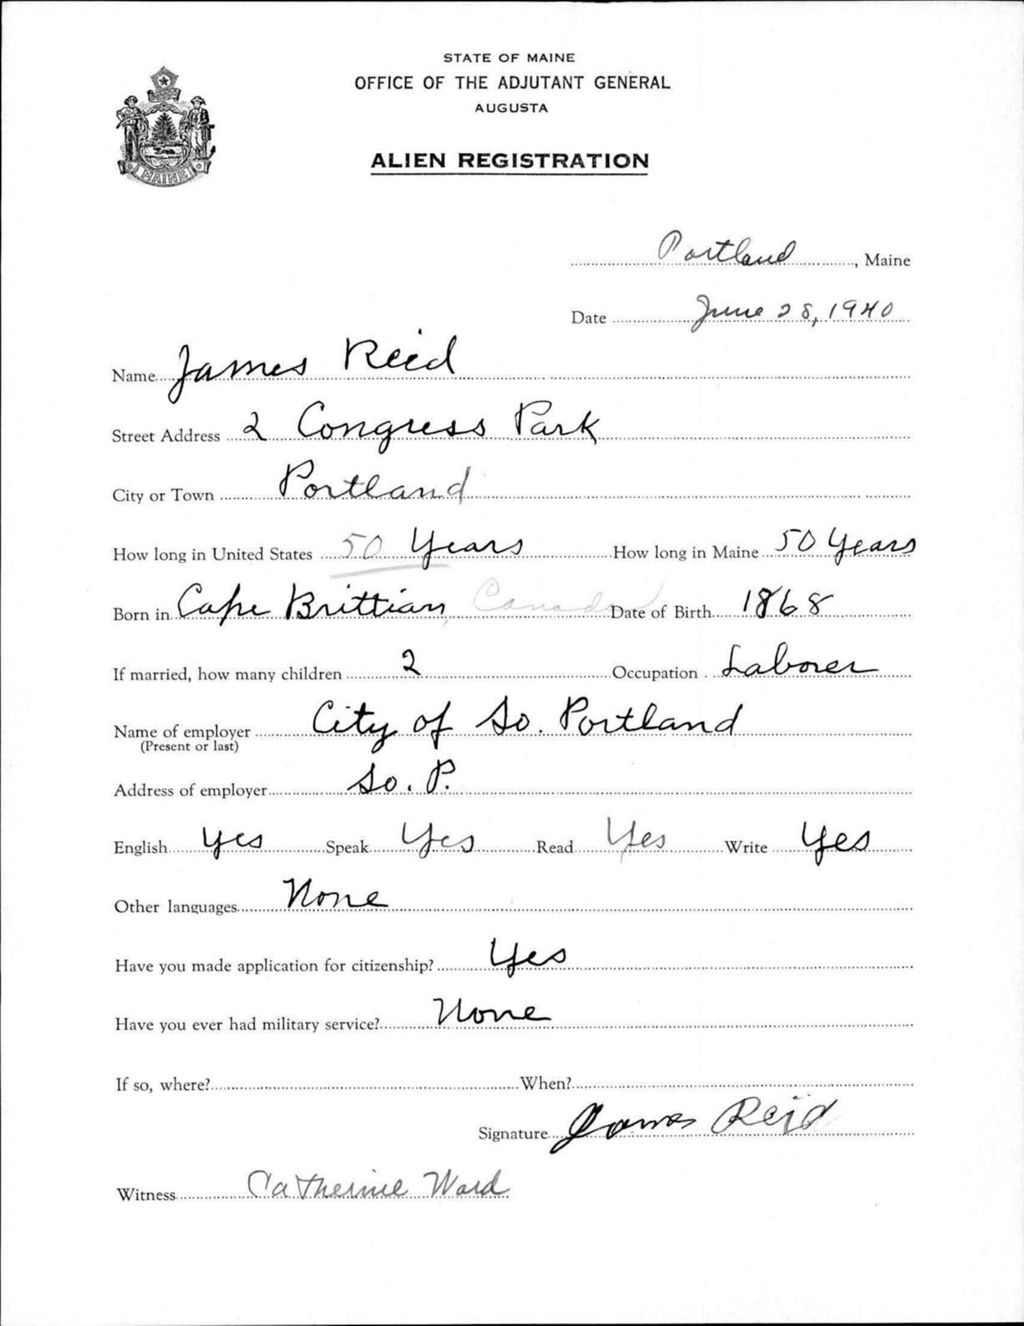 STATE OF MAINE
OFFICE OF THE ADJUTANT GENERAL
AUGUSTA
ALIEN REGISTRATION
MAINE
Portland, Maine
Date June 28, 1940
Name James Reid
Street Address 2 Congress Park
City or Town Portland
How long in United States 50 Years How long in Maine 50 Years
Born in Cape Brittian, Canada Date of Birth 1868
If married, how many children 2 Occupation Laborer
Name of employer City of So. Portland
(Present or last)
Address of employer So. P.
English Yes Speak Yes Read Yes Write Yes
Other languages None
Have you made application for citizenship? Yes
Have you ever had military service? None
If so, where? When?
Signature James Reid
Witness Catherine Ward